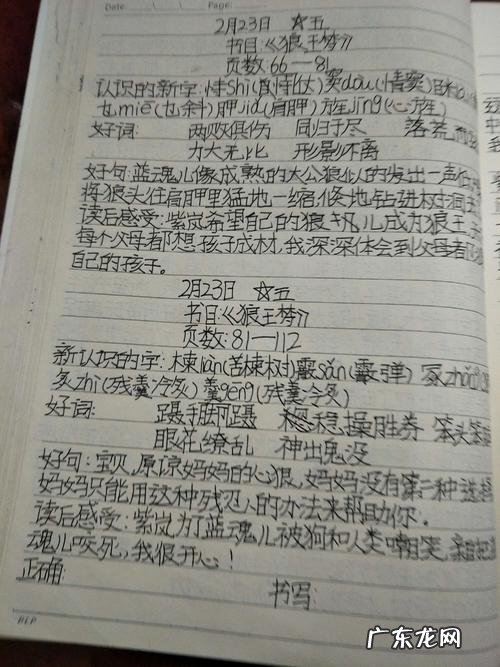 Date. Page:
2月23日 ☆五
书目:《狼王梦》
页数:66—81
认识的新字:恃shì(自恃强大) 窦dòu(情窦)
乜miē(乜斜) 胛jiǎ(肩胛) 旌jīng(心旌)
好词: 两败俱伤 同归于尽 落荒而
力大无比 形影不离
好句:蓝魂儿像成熟的大公狼似的发出一声低
将狼头往肩胛里猛地一缩,倏地钻进树洞去
读后感受:紫岚希望自己的狼儿成为狼王,
每个父母都想孩子成材,我深深体会到父母都
自己的孩子。
2月23日 ☆五
书目:《狼王梦》
页数:81—112
新认识的字:楝liàn(苦楝树) 霰sǎn(霰弹) 冢zhǒng
炙zhì(残羹冷炙) 羹gēng(残羹冷炙)
好词: 蹑手蹑脚 稳操胜券 笨头笨
眼花缭乱 神出鬼没
好句:宝贝,原谅妈妈的心狠,妈妈没有第二种选择
妈妈只能用这种残忍的办法来帮助你。
读后感受:紫岚为了蓝魂儿被狗和人类嘲笑,亲自把蓝
魂儿咬死,我很开心!
正确: 书写:
广东龙网